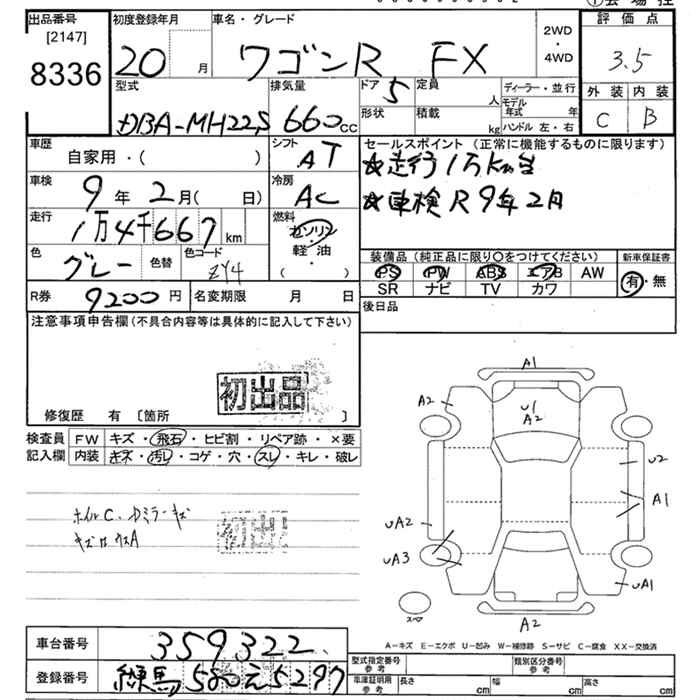 出品番号
[2147]
8336
初度登録年月
20 月
車名・グレード
ワゴンR FX
2WD
・
4WD
評価点
3.5
外装 内装
C B
型式
DBA-MH22S
排気量
660cc
ドア
5
定員
人
形状
積載
kg
ディーラー・並行
モデル年式 年
ハンドル 左・右
車歴
自家用・( )
シフト
AT
車検
9年2月( 日)
冷房
AC
走行
1万4千667km
燃料
ガソリン
軽・油
・( )
色
グレー
色替
色コード
ZY4
R券
9200円
名変期限 月 日
セールスポイント(正常に機能するものに限ります)
☆走行1万km台
☆車検R9年2月
装備品(純正品に限り○をつけてください)
PS PW ABS エアB AW
SR ナビ TV カワ
新車保証書
有・無
後日品
注意事項申告欄(不具合内容等は具体的に記入して下さい)
初出品
修復歴 有 [箇所 ]
検査員記入欄
FW キズ・飛石・ヒビ割・リペア跡・×要
内装 キズ・汚レ・コゲ・穴・スレ・キレ・破レ
ホイルC、
初出
A1
A2
U1
A2
U2
A1
UA2
UA3
UA1
A2
スペア
A-キズ E-エクボ U-凹み W-補修跡 S-サビ C-腐食 XX-交換済
車台番号
359322
登録番号
練馬580え5297
型式指定番号
参考
類別区分番号
参考
車庫証明用
参考
長さ cm
幅 cm
高さ cm